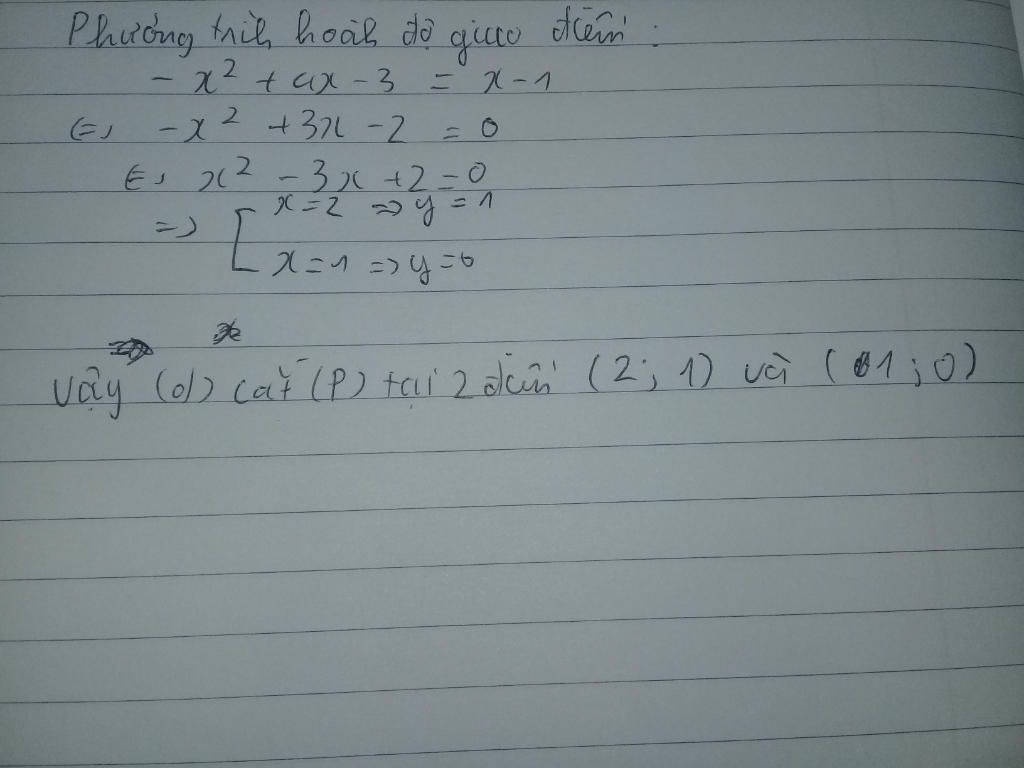 Phương trình hoành độ giao điểm :
- x² + 4x - 3 = x - 1
⇔ - x² + 3x - 2 = 0
⇔ x² - 3x + 2 = 0
⇒ [ x = 2 ⇒ y = 1
x = 1 ⇒ y = 0
Vậy (d) cắt (P) tại 2 điểm (2 ; 1) và (1 ; 0)